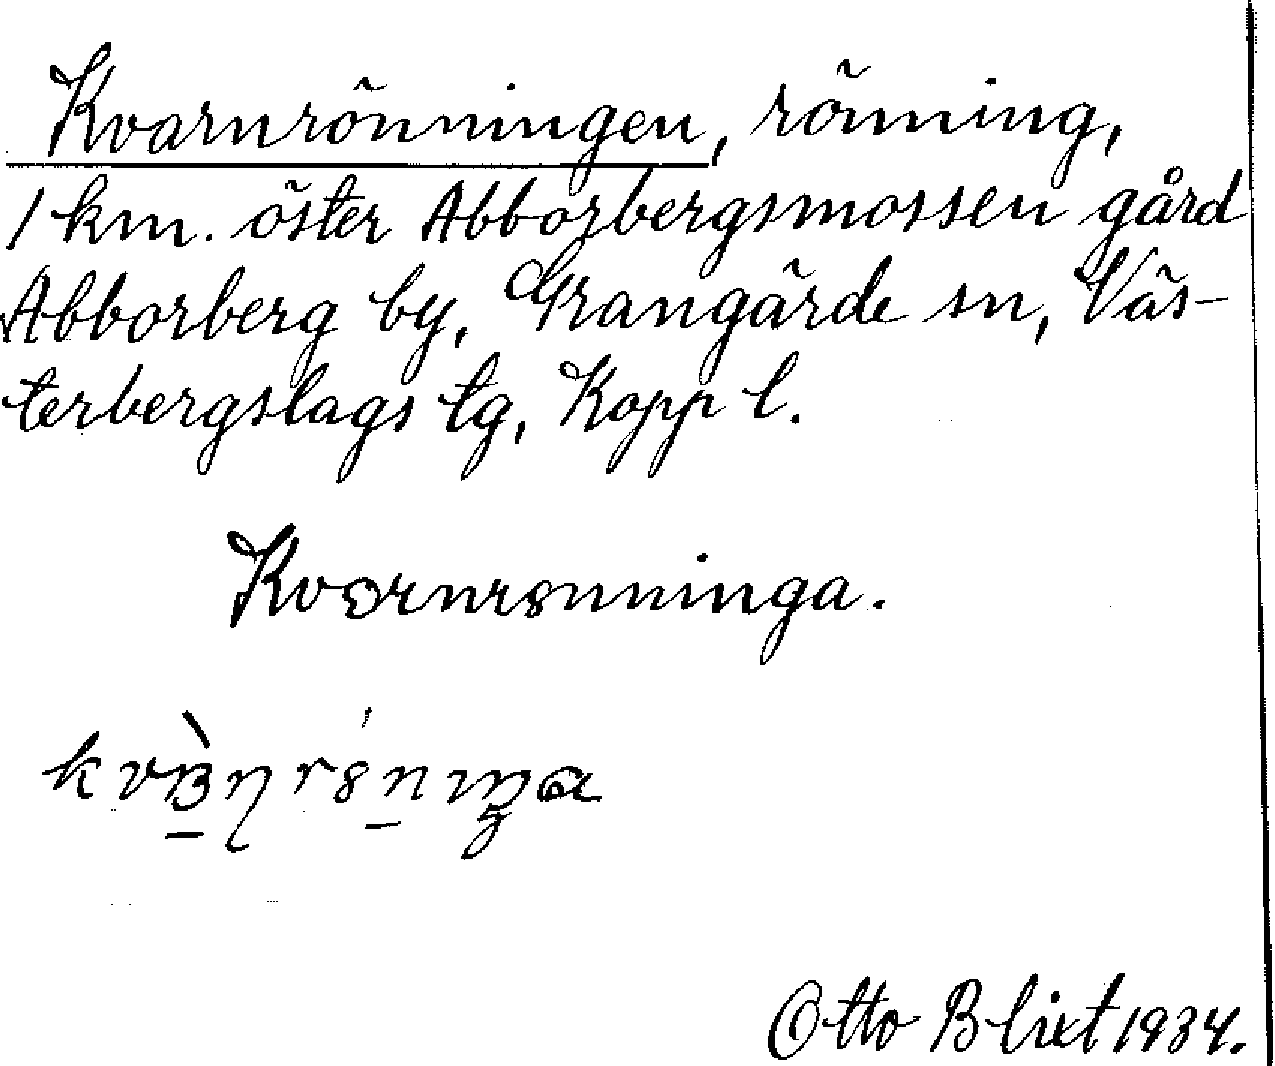 Kvarnrönningen, rönning,
1 km. öster Abborbergsmossen gård
Abborberg by, Grangärde sn, Väs-
terbergslags tg, Kopp l.
Otto Blixt 1934.